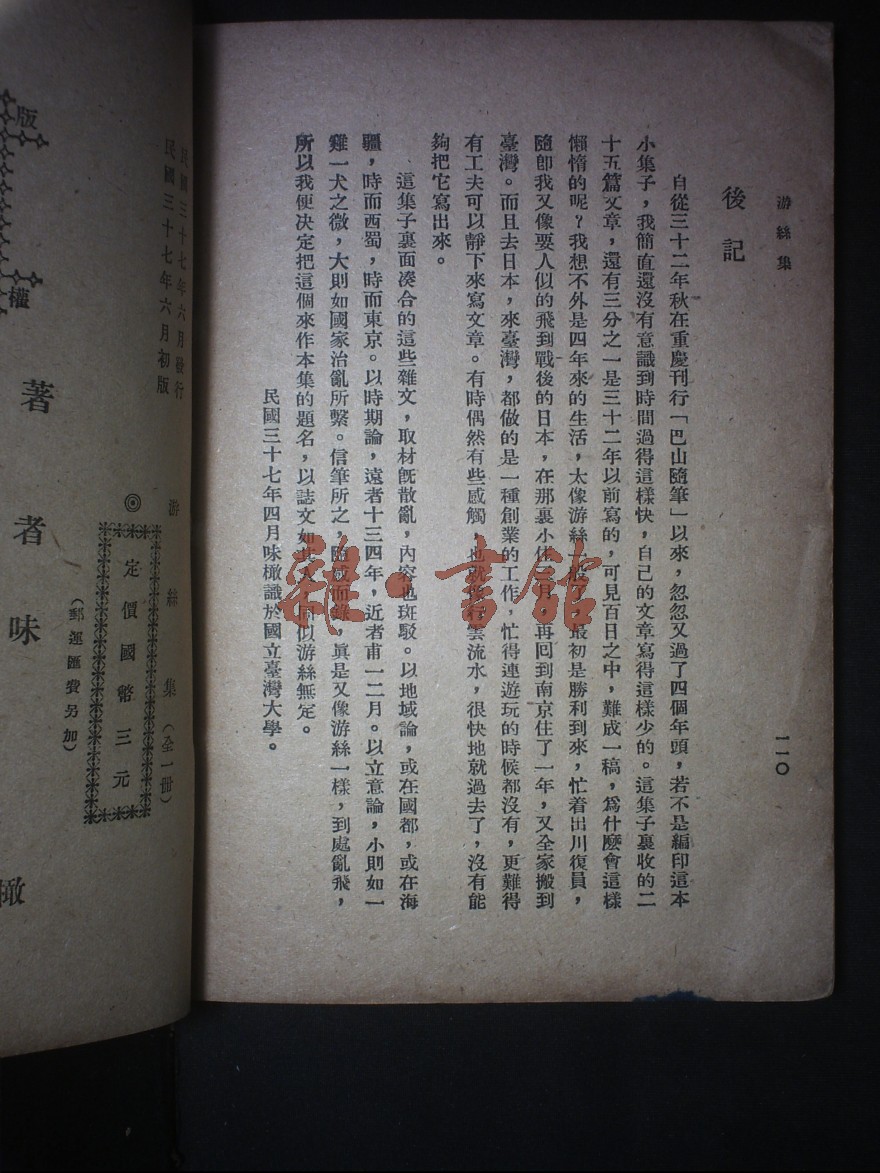 游絲集
一一〇
後記
自從三十二年秋在重慶刊行「巴山隨筆」以來，忽忽又過了四個年頭，若不是編印這本
小集子，我簡直還沒有意識到時間過得這樣快，自己的文章寫得這樣少的。這集子裏收的二
十五篇文章，還有三分之一是三十二年以前寫的，可見百日之中，難成一稿，爲什麼會這樣
懶惰的呢？我想不外是四年來的生活，太像游絲一般了，最初是勝利到來，忙着出川復員，
隨卽我又像要人似的飛到戰後的日本，在那裏小休三月，再回到南京住了一年，又全家搬到
臺灣。而且去日本，來臺灣，都做的是一種創業的工作，忙得連遊玩的時候都沒有，更難得
有工夫可以靜下來寫文章。有時偶然有些感觸，也就像行雲流水，很快地就過去了，沒有能
夠把它寫出來。
這集子裏面湊合的這些雜文，取材旣散亂，內容也斑駁。以地域論，或在國都，或在海
疆，時而西蜀，時而東京。以時期論，遠者十三四年，近者甫一二月。以立意論，小則如一
雞一犬之微，大則如國家治亂所繫。信筆所之，隨感而錄，眞是又像游絲一樣，到處亂飛，
所以我便決定把這個來作本集的題名，以誌文如其人，同似游絲無定。
民國三十七年四月味橄識於國立臺灣大學。
雜·書館
民國三十七年六月發行
民國三十七年六月初版
游絲集（全一册）
◎定價國幣三元
（郵運匯費另加）
版權
著者味橄